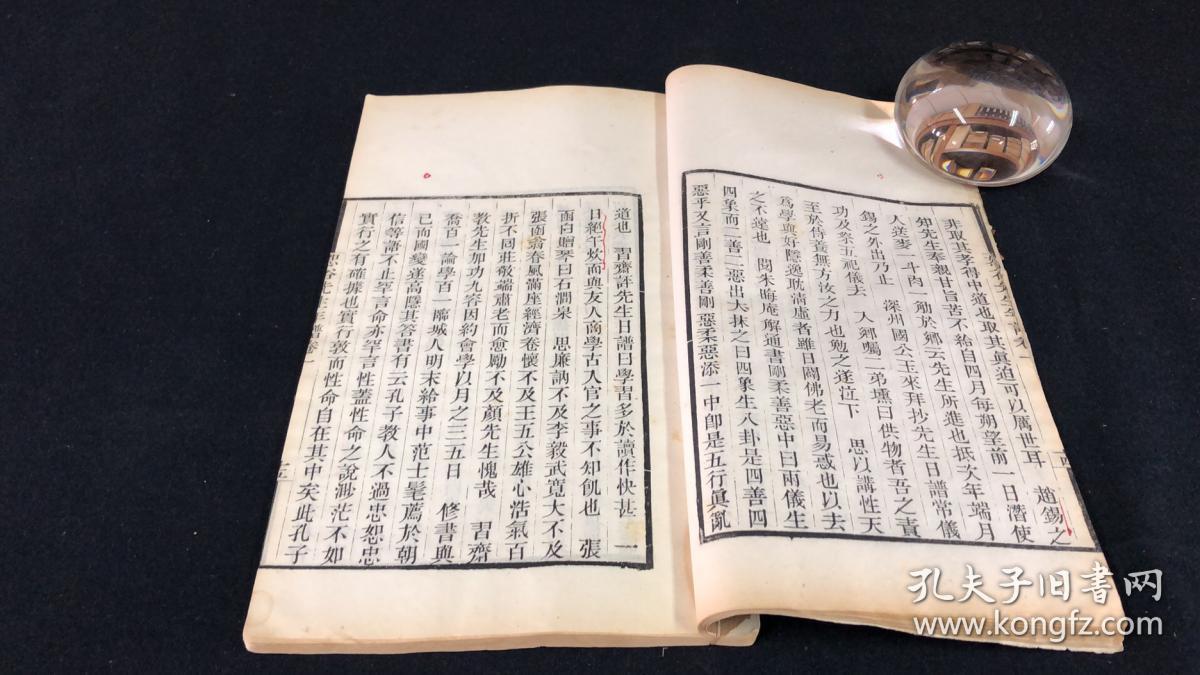 非取其孝得中道也取其眞迫可以厲世耳　趙錫之
知先生奉親甘旨苦不給自四月每朔望前一日潛使
人送麥一斗肉一觔於鄉云先生所進也抵次年端月
錫之外出乃止　深州國公玉來拜抄先生日譜常儀
功及祭五祀儀去　入鄉囑二弟壎曰供物者吾之責
至於侍養無方汝之力也勉之遂泣下　思以講性天
爲學與好隱逸耽淸虛者雖日闢佛老而易惑也以去
之不遠也　閱朱晦庵解通書剛柔善惡中曰兩儀生
四象而二善二惡出大抹之曰四象生八卦是四善四
惡乎又言剛善柔善剛惡柔惡添一中卽是五行眞亂
道也　習齋評先生日譜曰學習多於讀作快甚　一
日絕午炊而與友人商學古人官之事不知飢也　張
函白贈琴曰石澗泉　思廉訥不及李毅武寬大不及
張函翁春風滿座經濟卷懷不及王五公雄心浩氣百
折不同莊敬端肅老而愈勵不及顏先生愧哉　習齋
敎先生加功九容因約會學以月之三五日　修書與
喬百一論學百一臨城人明末給事中范士髦薦於朝
已而國變遂高隱其答書有云孔子教人不過忠恕忠
信等語不止罕言命亦罕言性蓋性命之說渺茫不如
實行之有確據也實行敦而性命自在其中矣此孔子
孔夫子旧书网
www.kongfz.com